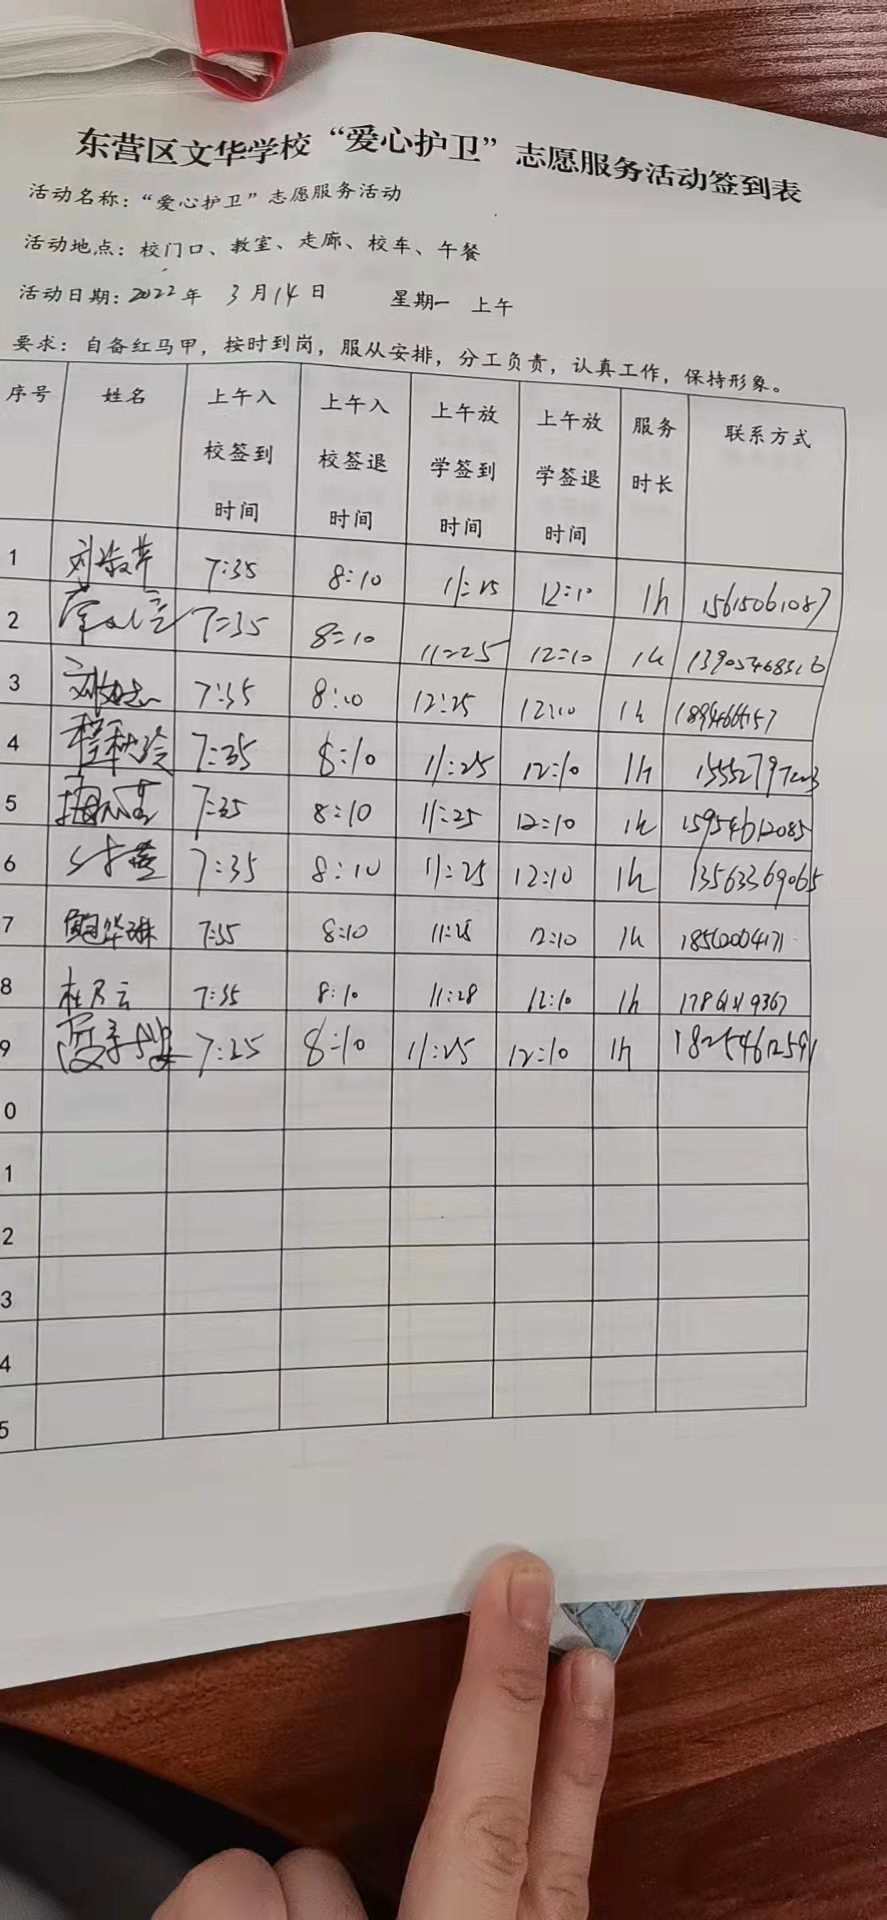 东营区文华学校“爱心护卫”志愿服务活动签到表
活动名称：“爱心护卫”志愿服务活动
活动地点：校门口、教室、走廊、校车、午餐
活动日期：2022年 3月14日 星期一 上午
要求：自备红马甲，按时到岗，服从安排，分工负责，认真工作，保持形象。
序号 姓名 上午入校签到时间 上午入校签退时间 上午放学签到时间 上午放学签退时间 服务时长 联系方式
1 刘淑芹 7:35 8:10 11:25 12:10 1h 15615061087
2 7:35 8:10 11:25 12:10 1h
3 7:35 8:10 12:25 12:10 1h
4 程秋玲 7:35 8:10 11:25 12:10 1h
5 7:35 8:10 11:25 12:10 1h 15954612085
6 7:35 8:10 11:25 12:10 1h 13563369065
7 鲍华琳 7:35 8:10 11:25 12:10 1h
8 杜乃云 7:35 8:10 11:28 12:10 1h
9 7:25 8:10 11:25 12:10 1h 18254612591
0
1
2
3
4
5